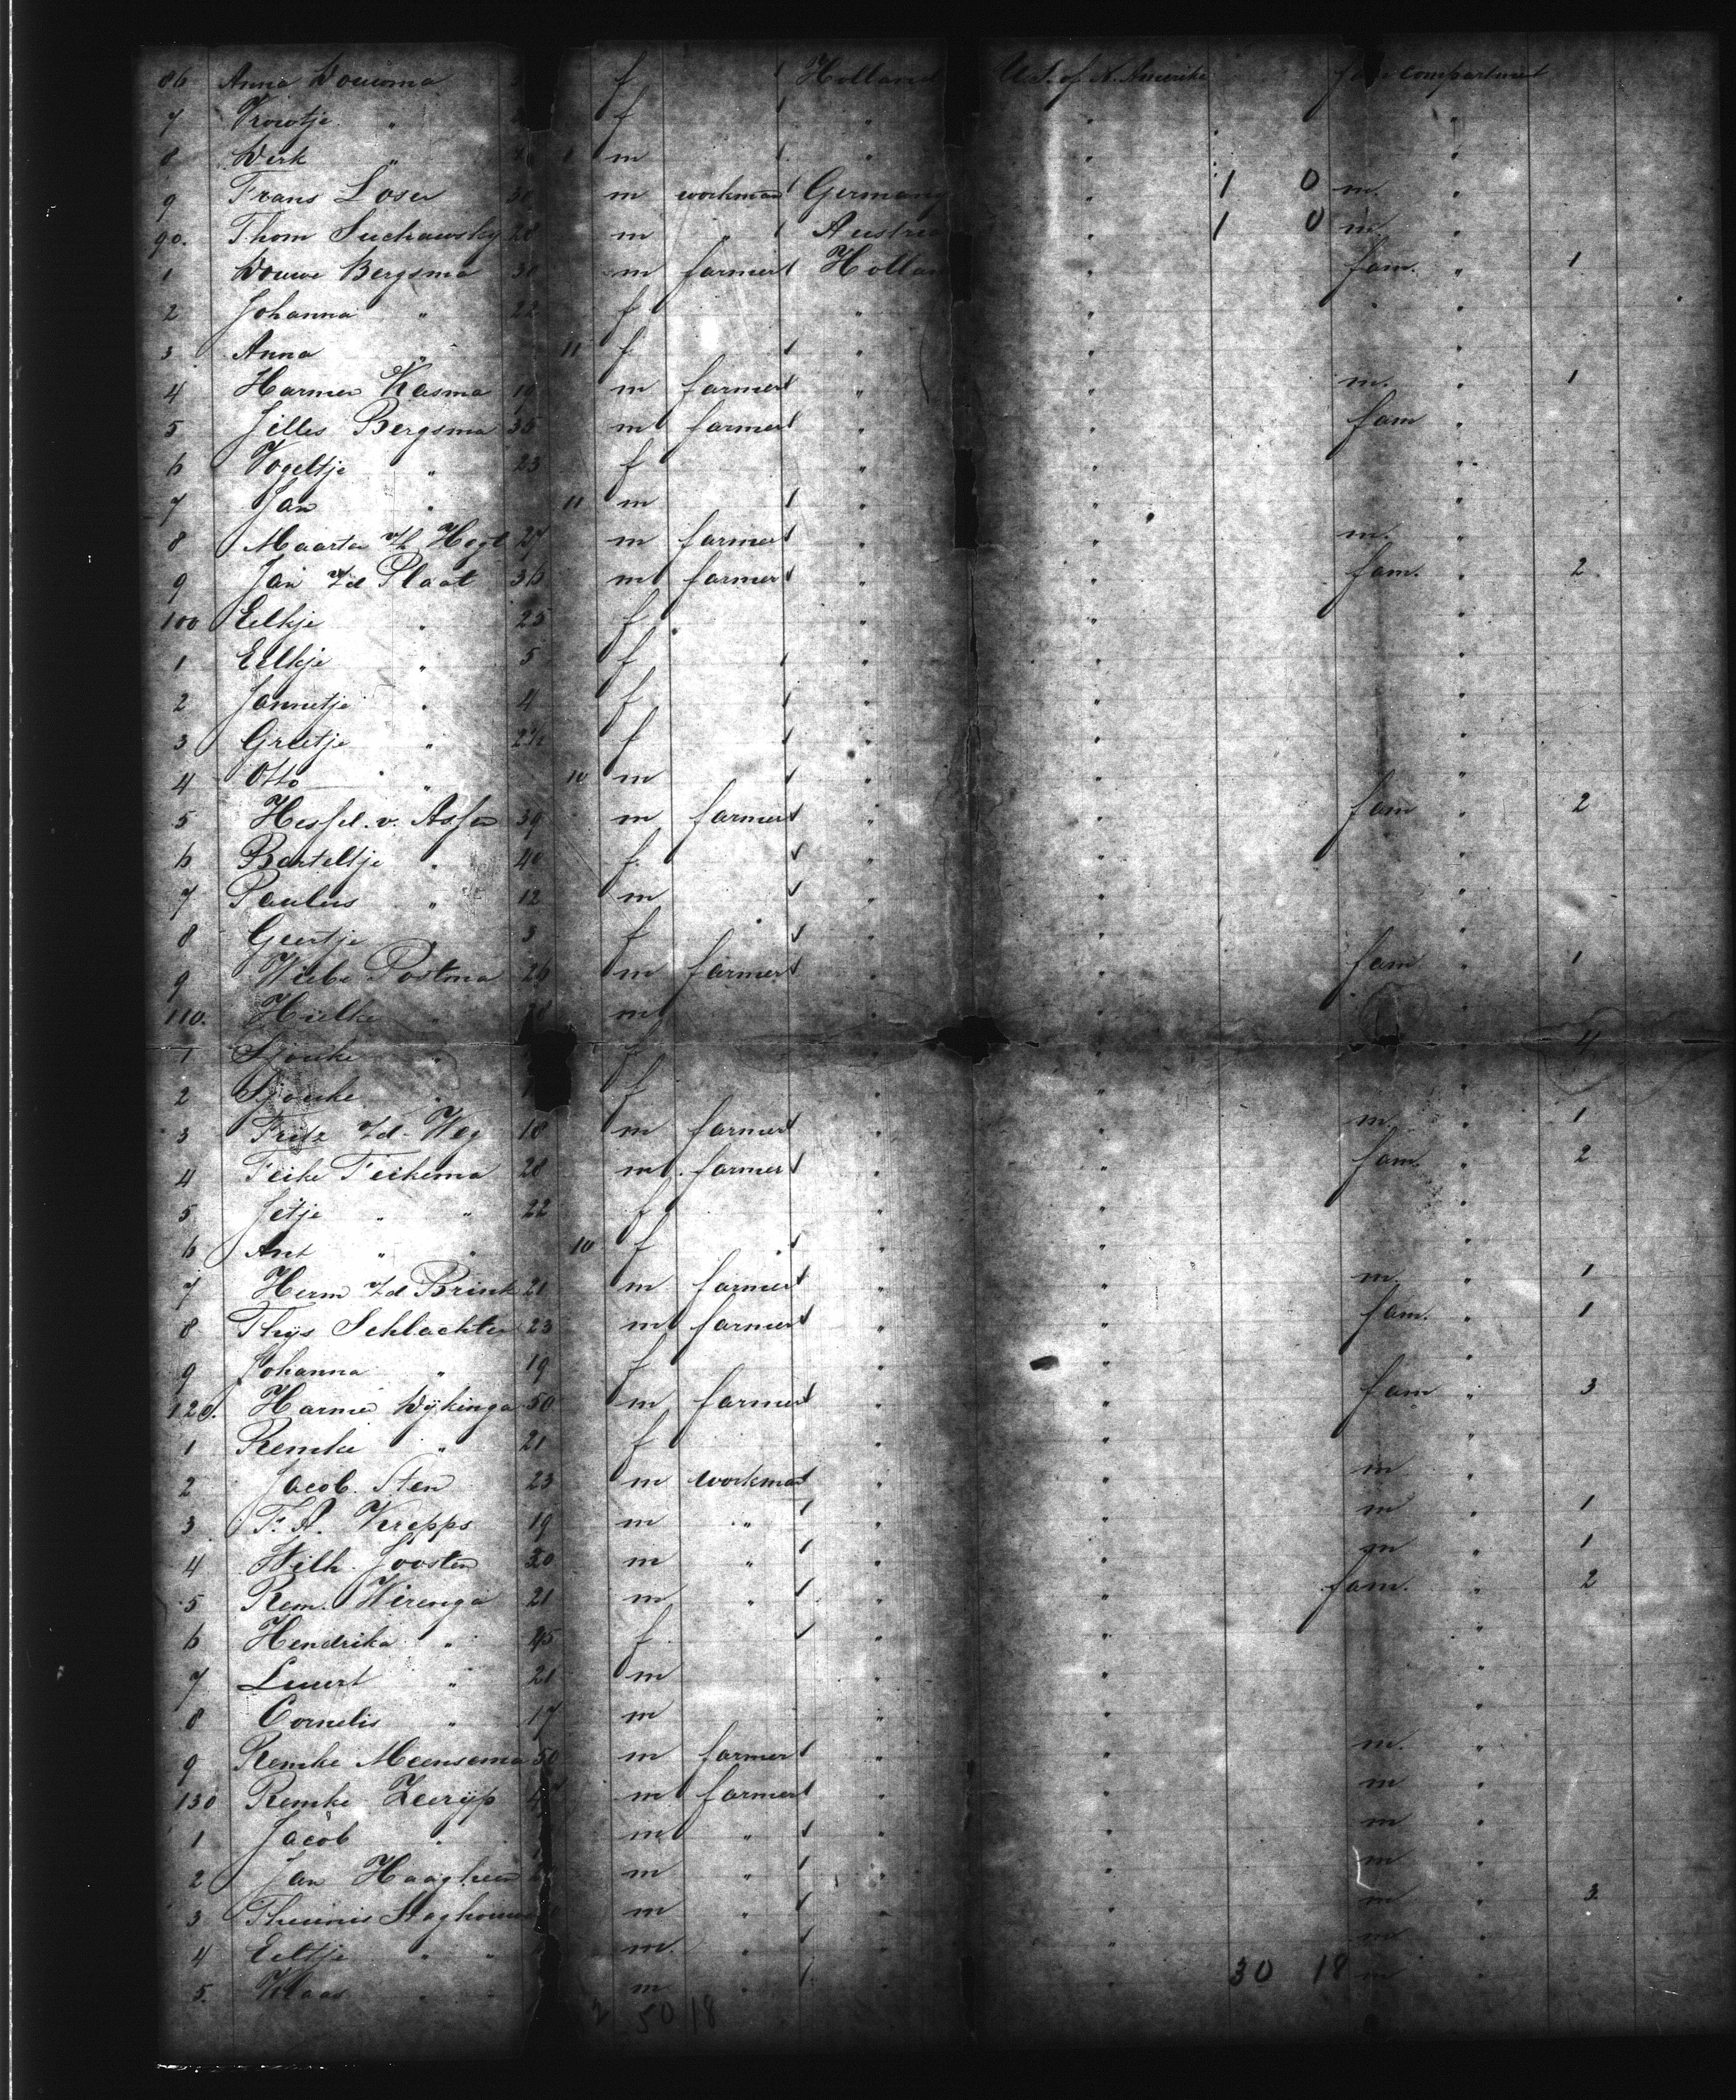 86 Anna Douwma f Holland U.S. of N. Amerika fam compartment
7 Vrowtje " f " " "
8 Dirk " m " " "
9 Frans Loser 30 m workman Germany " 1 0 m. "
90. Thom Suchawsky 28 m " Austria " 1 0 m. "
1 Douwe Bergsma 30 m farmer Holland " fam. " 1
2 Johanna " 22 f " " "
3 Anna " 11 f " " "
4 Harmen Kasma 19 m farmer " " m. " 1
5 Jilles Bergsma 35 m farmer " " fam "
6 Vogeltje " 23 f " " "
7 Jan " 11 m " " "
8 Maarten v/d 27 m farmer " " m. "
9 Jan v/d Plaat 36 m farmer " " fam. " 2
100 Eelkje " 25 f " " "
1 Eelkje " 5 f " " "
2 Jannetje " 4 f " " "
3 Grietje " f " " "
4 Otto " 10 m " " "
5 Hessel. v. Assen 39 m farmer " " fam " 2
6 Barteltje " 40 f " " "
7 Paulus " 12 m " " "
8 Geertje 3 f " " "
9 Wiebe Postma 26 m farmer " " fam " 1
110. Hielke " m " " "
1 Sjouke " f " " "
2 Sjouke " f " " "
3 Fritz v/d Weg 18 m farmer " " m. " 1
4 Feike Feikema 28 m farmer " " fam. " 2
5 Jetje " " 22 f " " "
6 Ant " " 10 f " " "
7 Herm v/d Brink 21 m farmer " " m. " 1
8 Thijs Schlachter 23 m farmer " " fam. " 1
9 Johanna " 19 f " " "
120. Harmen Dijkinga 50 m farmer " " fam " 3
1 Remke " 21 f " " "
2 Jacob Sten 23 m workman " " m "
3 F. A. Krepps 19 m " " " m " 1
4 Wilh. Joosten 20 m " " " m " 1
5 Rem. Wirenga 21 m " " " fam. " 2
6 Hendrika " 25 f " " "
7 Leuert " 21 m " " "
8 Cornelis " 17 m " " "
9 Remke Meensema 50 m farmer " " m. "
130 Remke Zeerijp m farmer " " m "
1 Jacob " m " " " m "
2 Jan m " " " m "
3 Theunis m " " " m " 3
4 Eeltje " " m. " " " m "
5. Klaas " m " " " 30 18 m "
2 30 18